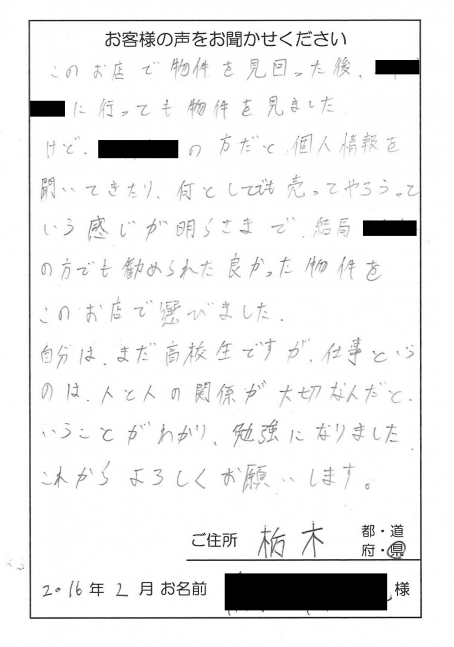 お客様の声をお聞かせください
このお店で物件を見回った後、
に行っても物件を見ました
けど、の方だと、個人情報を
聞いてきたり、何としてでも売ってやろうって
いう感じが明らさまで、結局
の方でも勧められた良かった物件を
このお店で選びました。
自分は、まだ高校生ですが、仕事という
のは、人と人の関係が大切なんだと、
いうことがわかり、勉強になりました
これからよろしくお願いします。
ご住所 栃木 都・道
府・県
2016年2月 お名前 様